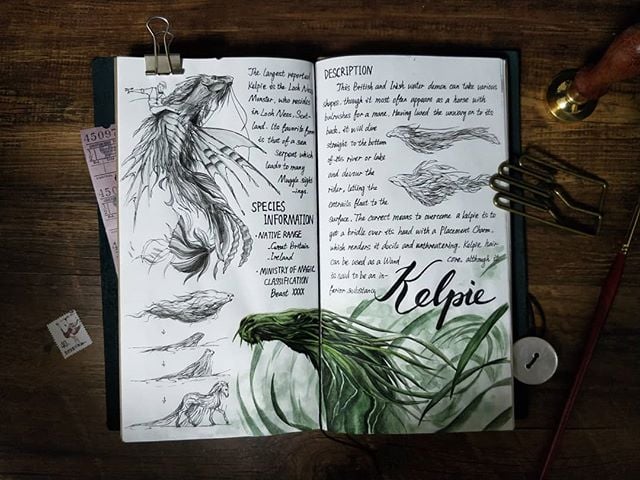 The largest reported
Kelpie is the Loch Ness
Monster, who resides
in Loch Ness, Scot-
land. Its favorite form
is that of a sea
serpent which
leads to many
Muggle sight
-ings.
SPECIES
INFORMATION
• NATIVE RANGE
-Great Britain
-Ireland
• MINISTRY OF MAGIC
CLASSIFICATION
Beast XXXX
DESCRIPTION
This British and Irish water demon can take various
shapes, though it most often appears as a horse with
bulrushes for a mane. Having lured the unwary on to its
back, it will dive
straight to the bottom
of its river or lake
and devour the
rider, letting the
entrails float to the
surface. The correct means to overcome a kelpie is to
get a bridle over its head with a Placement Charm,
which renders it docile and unthreatening. Kelpie hair
can be used as a Wand core, although it
is said to be an in-
ferior substance.
Kelpie
45097